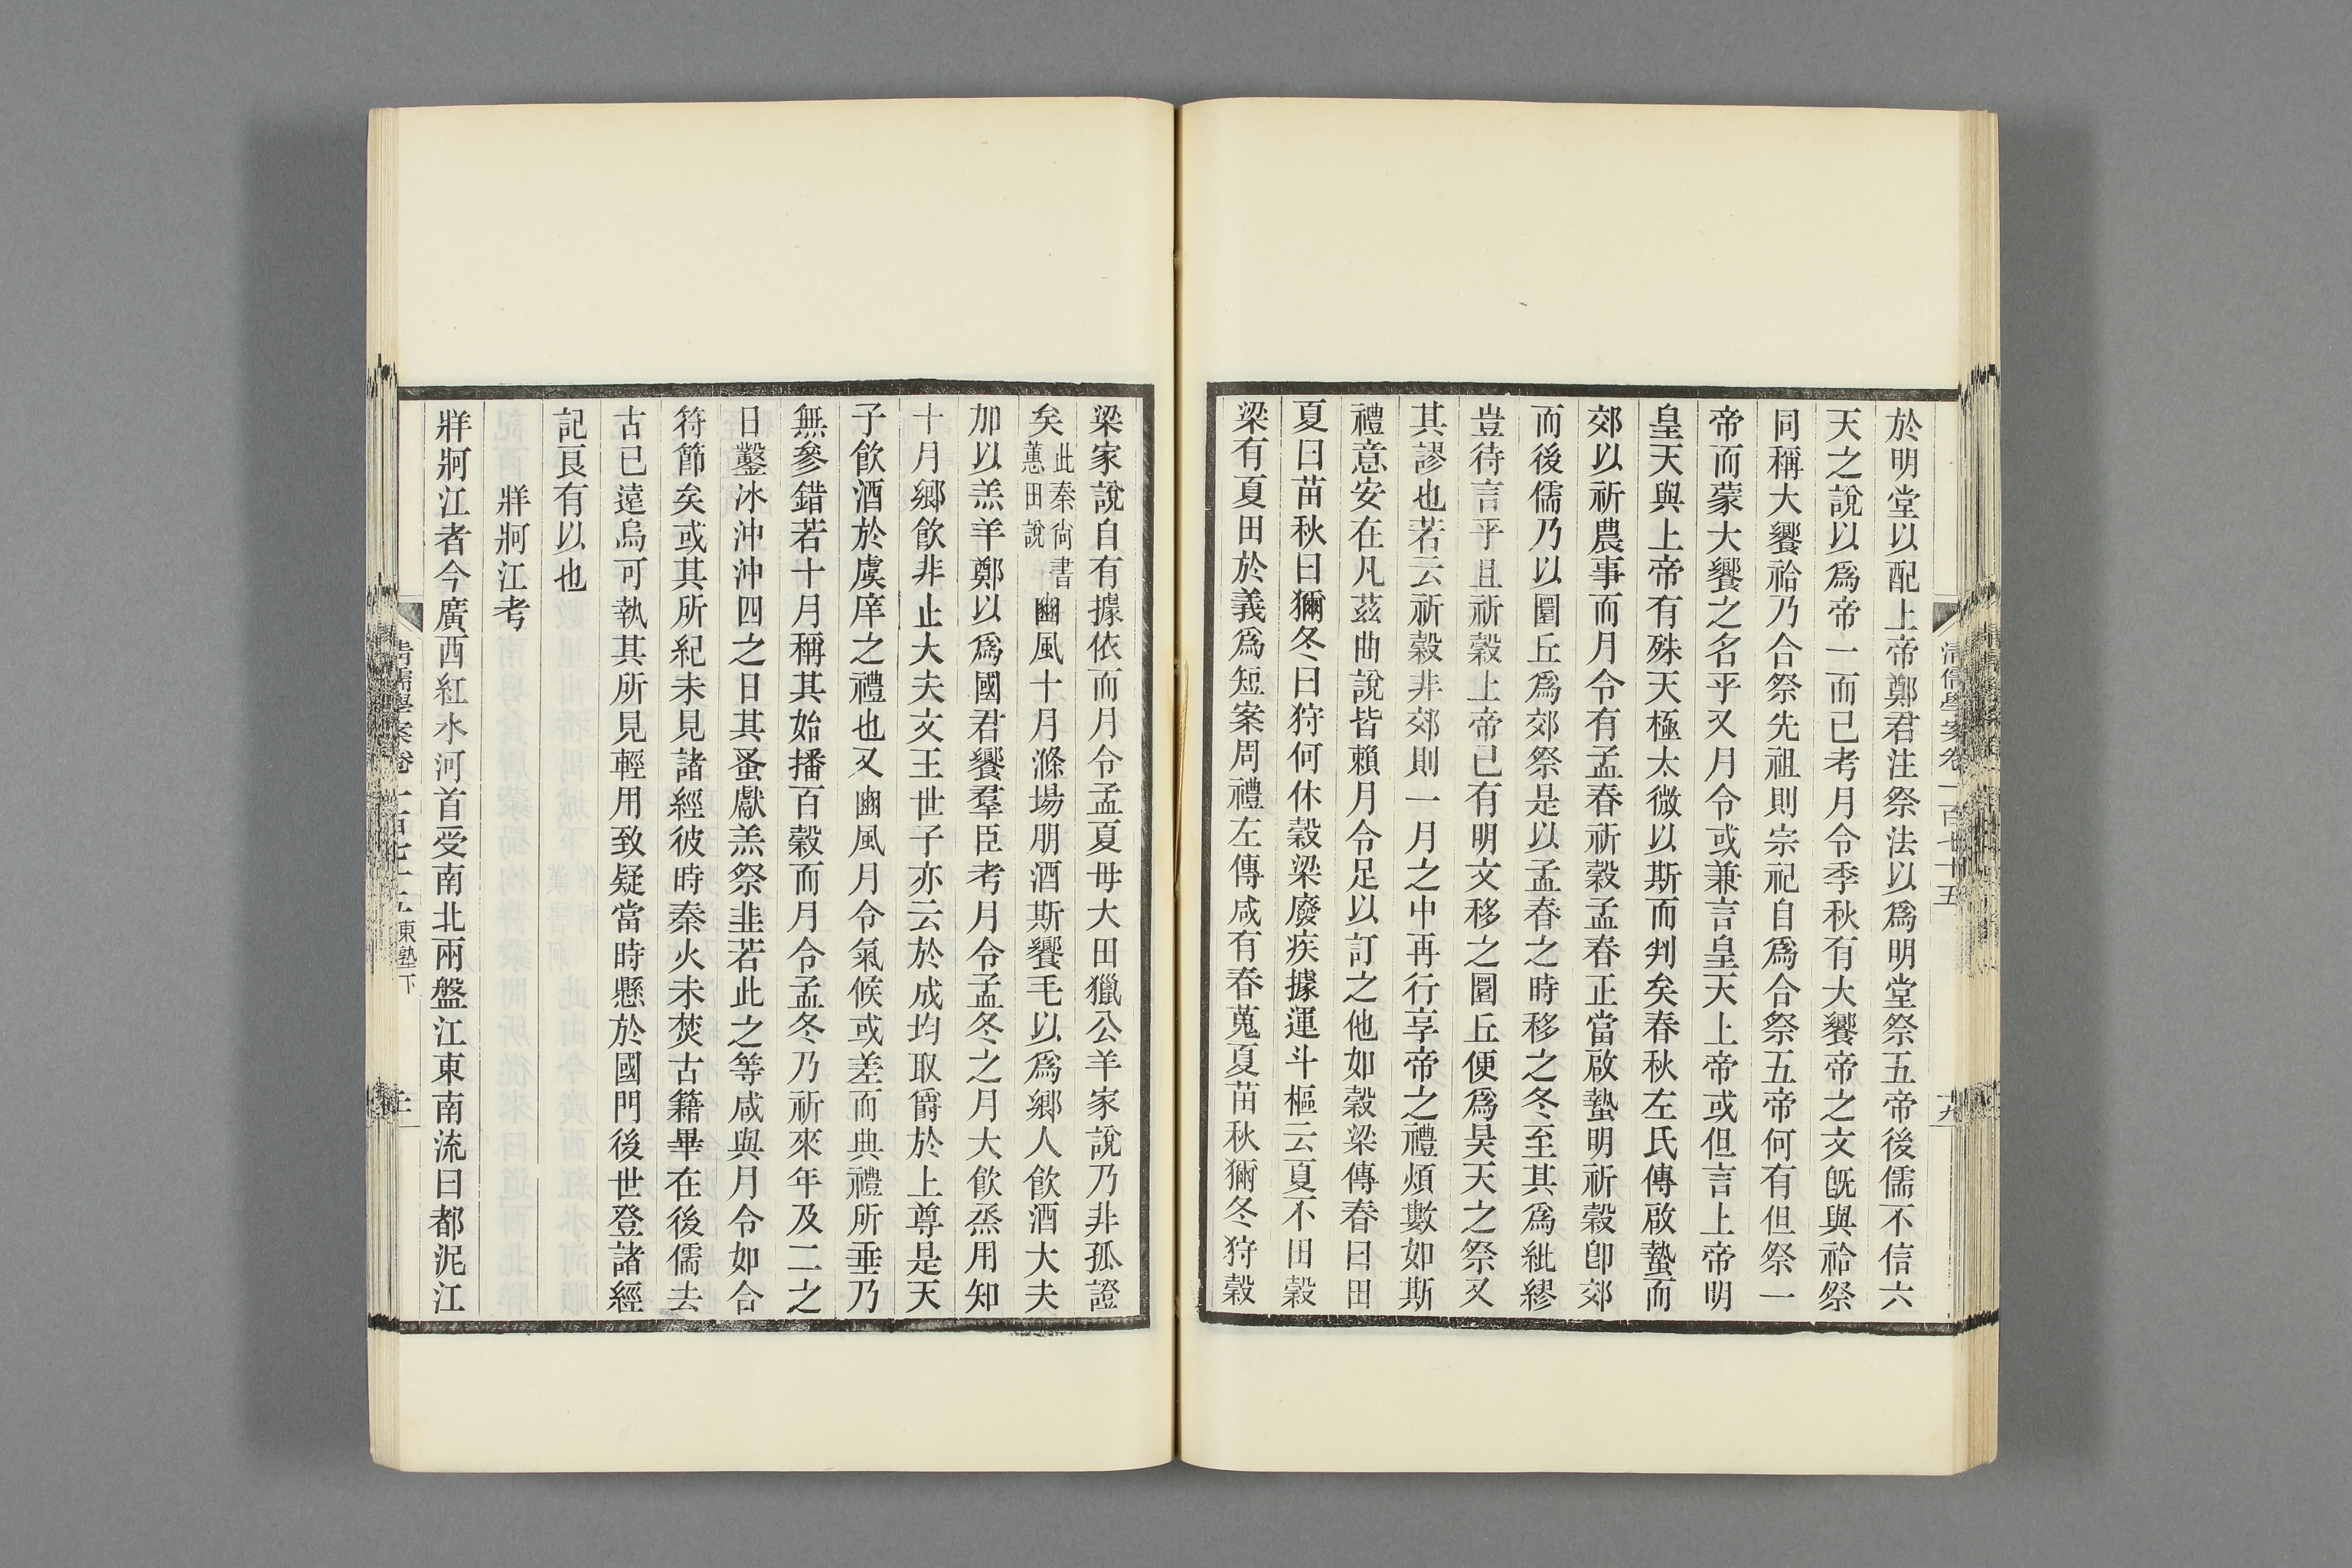 清儒學案卷一百七十五
十九
於明堂以配上帝鄭君注祭法以爲明堂祭五帝後儒不信六
天之說以爲帝一而已考月令季秋有大饗帝之文旣與祫祭
同稱大饗祫乃合祭先祖則宗祀自爲合祭五帝何有但祭一
帝而蒙大饗之名乎又月令或兼言皇天上帝或但言上帝明
皇天與上帝有殊天極太微以斯而判矣春秋左氏傳啟蟄而
郊以祈農事而月令有孟春祈穀孟春正當啟蟄明祈穀卽郊
而後儒乃以圜丘爲郊祭是以孟春之時移之冬至其爲紕繆
豈待言乎且祈穀上帝已有明文移之圜丘便爲昊天之祭又
其謬也若云祈穀非郊則一月之中再行享帝之禮煩數如斯
禮意安在凡茲曲說皆賴月令足以訂之他如穀梁傳春曰田
夏曰苗秋曰獮冬曰狩何休穀梁廢疾據運斗樞云夏不田穀
梁有夏田於義爲短案周禮左傳咸有春蒐夏苗秋獮冬狩穀
梁家說自有據依而月令孟夏毋大田獵公羊家說乃非孤證
矣此秦尙書蕙田說豳風十月滌場朋酒斯饗毛以爲鄉人飮酒大夫
加以羔羊鄭以爲國君饗羣臣考月令孟冬之月大飮烝用知
十月鄉飮非止大夫文王世子亦云於成均取爵於上尊是天
子飮酒於虞庠之禮也又豳風月令氣候或差而典禮所垂乃
無參錯若十月稱其始播百穀而月令孟冬乃祈來年及二之
日鑿冰沖沖四之日其蚤獻羔祭韭若此之等咸與月令如合
符節矣或其所紀未見諸經彼時秦火未焚古籍畢在後儒去
古已遠烏可執其所見輕用致疑當時懸於國門後世登諸經
記良有以也
牂牁江考
牂牁江者今廣西紅水河首受南北兩盤江東南流曰都泥江
清儒學案卷一百七十五 東塾下